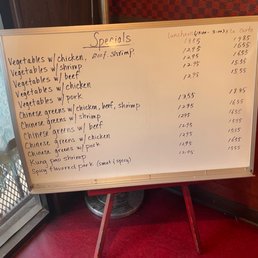 Specials
Lunch (11:00 - 3:00) à la carte
Vegetables w/ chicken, beef, shrimp 1395 1985
Vegetables w/ shrimp 1295 1655
Vegetables w/ beef 1295 1655
Vegetables w/ chicken 1295 1535
Vegetables w/ pork 1295 1555
Chinese greens w/ chicken, beef, shrimp 1355 1895
Chinese greens w/ shrimp 1295 1655
Chinese greens w/ beef 1295 1655
Chinese greens w/ chicken 1295 1555
Chinese greens w/ pork 1295 1555
Kung pao shrimp 1295 1655
Spicy flavored pork (sweet & spicy) 1295 1555